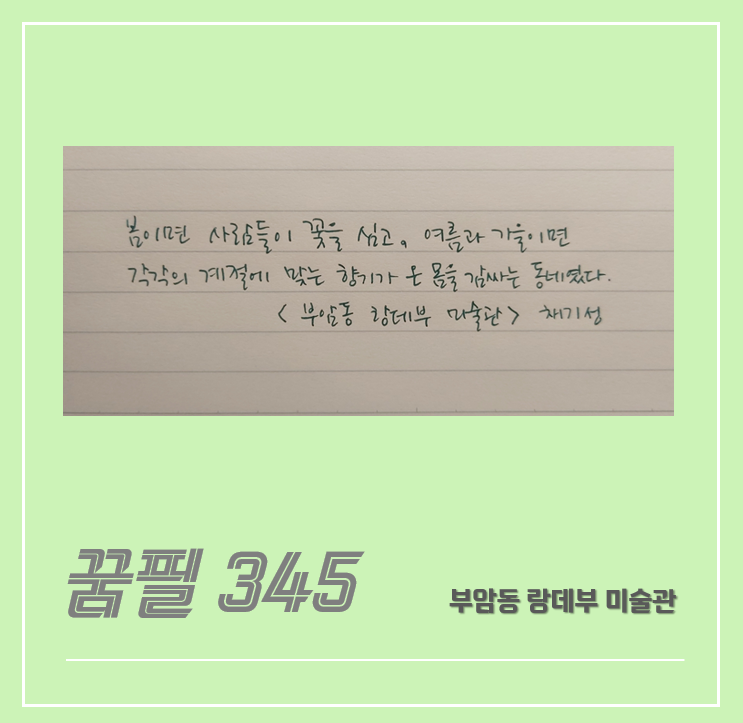 봄이면 사람들이 꽃을 심고, 여름과 가을이면
각각의 계절에 맞는 향기가 온 몸을 감싸는 동네였다.
< 부암동 랑데부 미술관 > 채기성
꿈필 345
부암동 랑데부 미술관